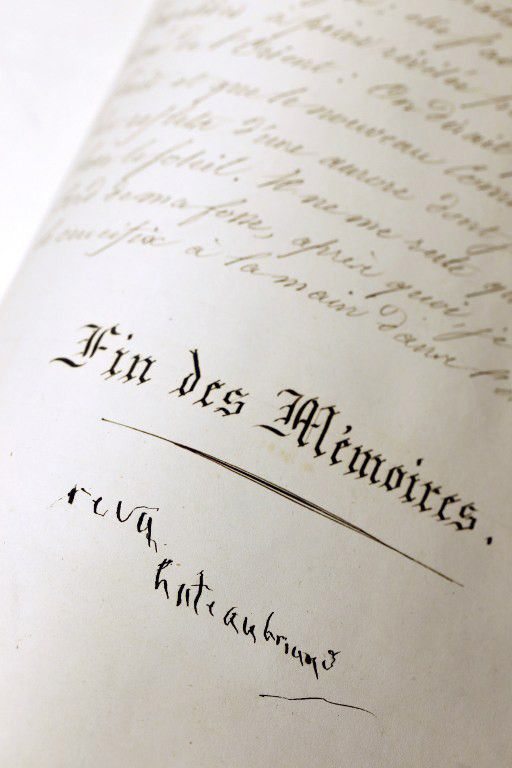 à peine révélée
de l'Orient. On dirait
et que le nouveau com
reflets d'une aurore dont
le soleil. Il ne me reste qu
de ma fosse, après quoi, je
crucifix à la main dans
Fin des Mémoires.
revu
hateaubriand